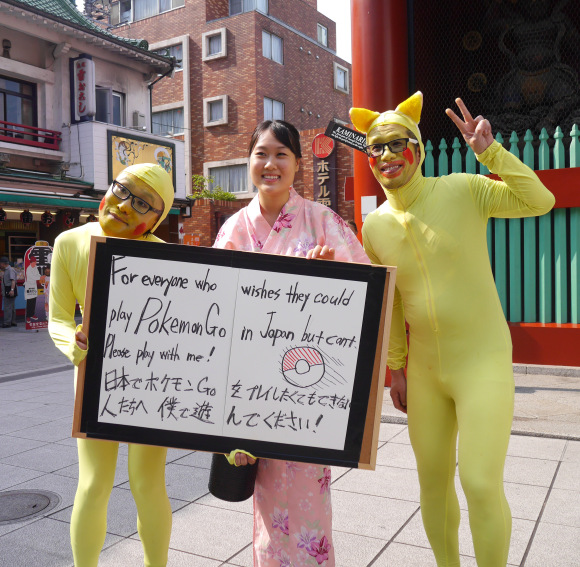 For everyone who wishes they could
play Pokemon Go in Japan but cant.
Please play with me!
日本でポケモンGo をプレイしたくてもできない
人たちへ 僕で遊んでください!
KAMINARI
ホテル